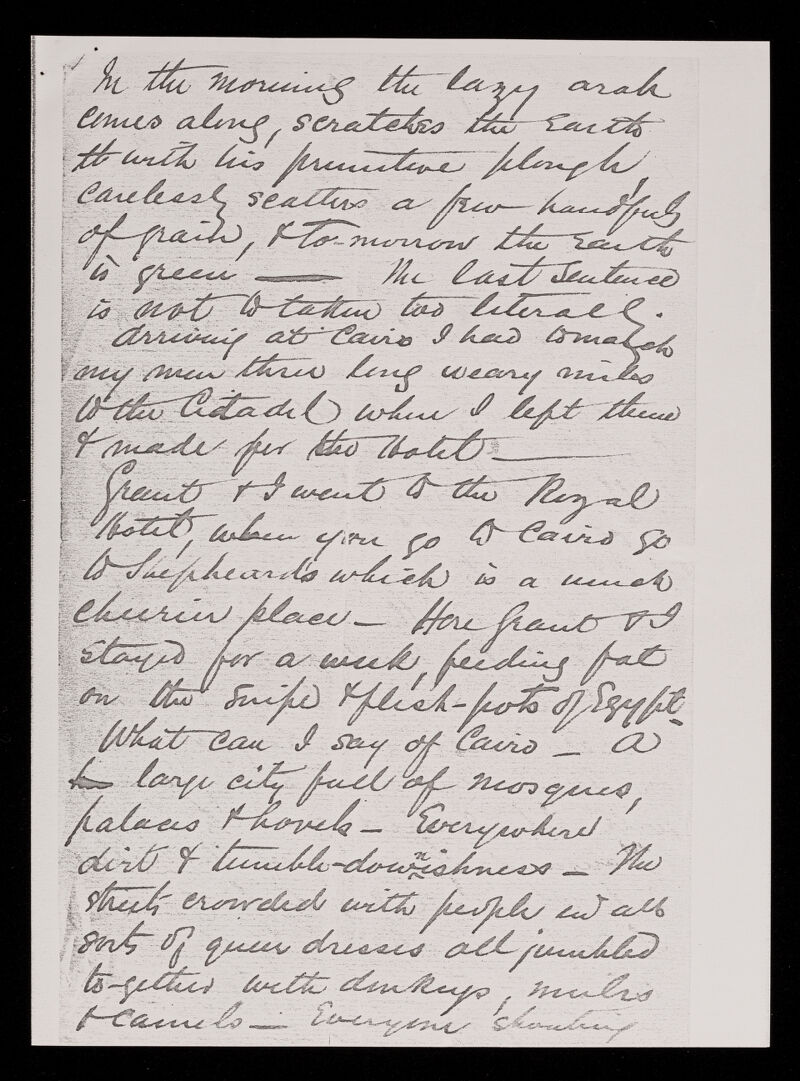 In the morning the lazy arab
comes along, scratches the Earth
th with his primitive plough,
carelessly scatters a few handfuls
of grain, & to-morrow the Earth
is green — The last sentence
is not to taken too literally.
Arriving at Cairo I had to march
my men three long weary miles
to the Citadel when I left them
& made for the Hotel —
Grant & I went to the Royal
Hotel, when you go to Cairo go
to Shepheards which is a much
cheerier place — Here Grant & I
stayed for a week, feeding fat
on the snipe & flesh-pots of Egypt -
What can I say of Cairo — A
large city full of mosques,
palaces & hovels — Everywhere
dirt & tumble-downishness — The
streets crowded with people in all
sorts of queer dresses all jumbled
to-gether with donkeys, mules
& camels — Everyone shouting